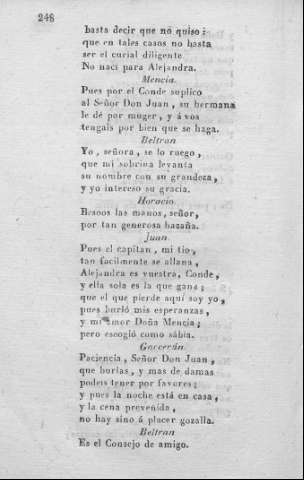 248
basta decir que no quiso;
que en tales casos no basta
ser el curial diligente.
No nací para Alejandra.
Mencia.
Pues por el Conde suplico
al Señor Don Juan, su hermana
le dé por muger, y á vos
tengais por bien que se haga.
Beltran
Yo, señora, se lo ruego,
que mi sobrina levanta
su nombre con su grandeza,
y yo intereso su gracia.
Horacio
Besoos las manos, señor,
por tan generosa hazaña.
Juan.
Pues el capitan, mi tio,
tan facilmente se allana,
Alejandra es vuestra, Conde,
y ella sola es la que gana;
que el que pierde aquí soy yo,
pues burló mis esperanzas,
y mi amor Doña Mencia;
pero escogió como sábia.
Gorcerán
Paciencia, Señor Don Juan,
que burlas, y mas de damas
podeis tener por favores;
y pues la noche está en casa,
y la cena prevenida,
no hay sino á placer gozalla.
Beltran
Es el Consejo de amigo.